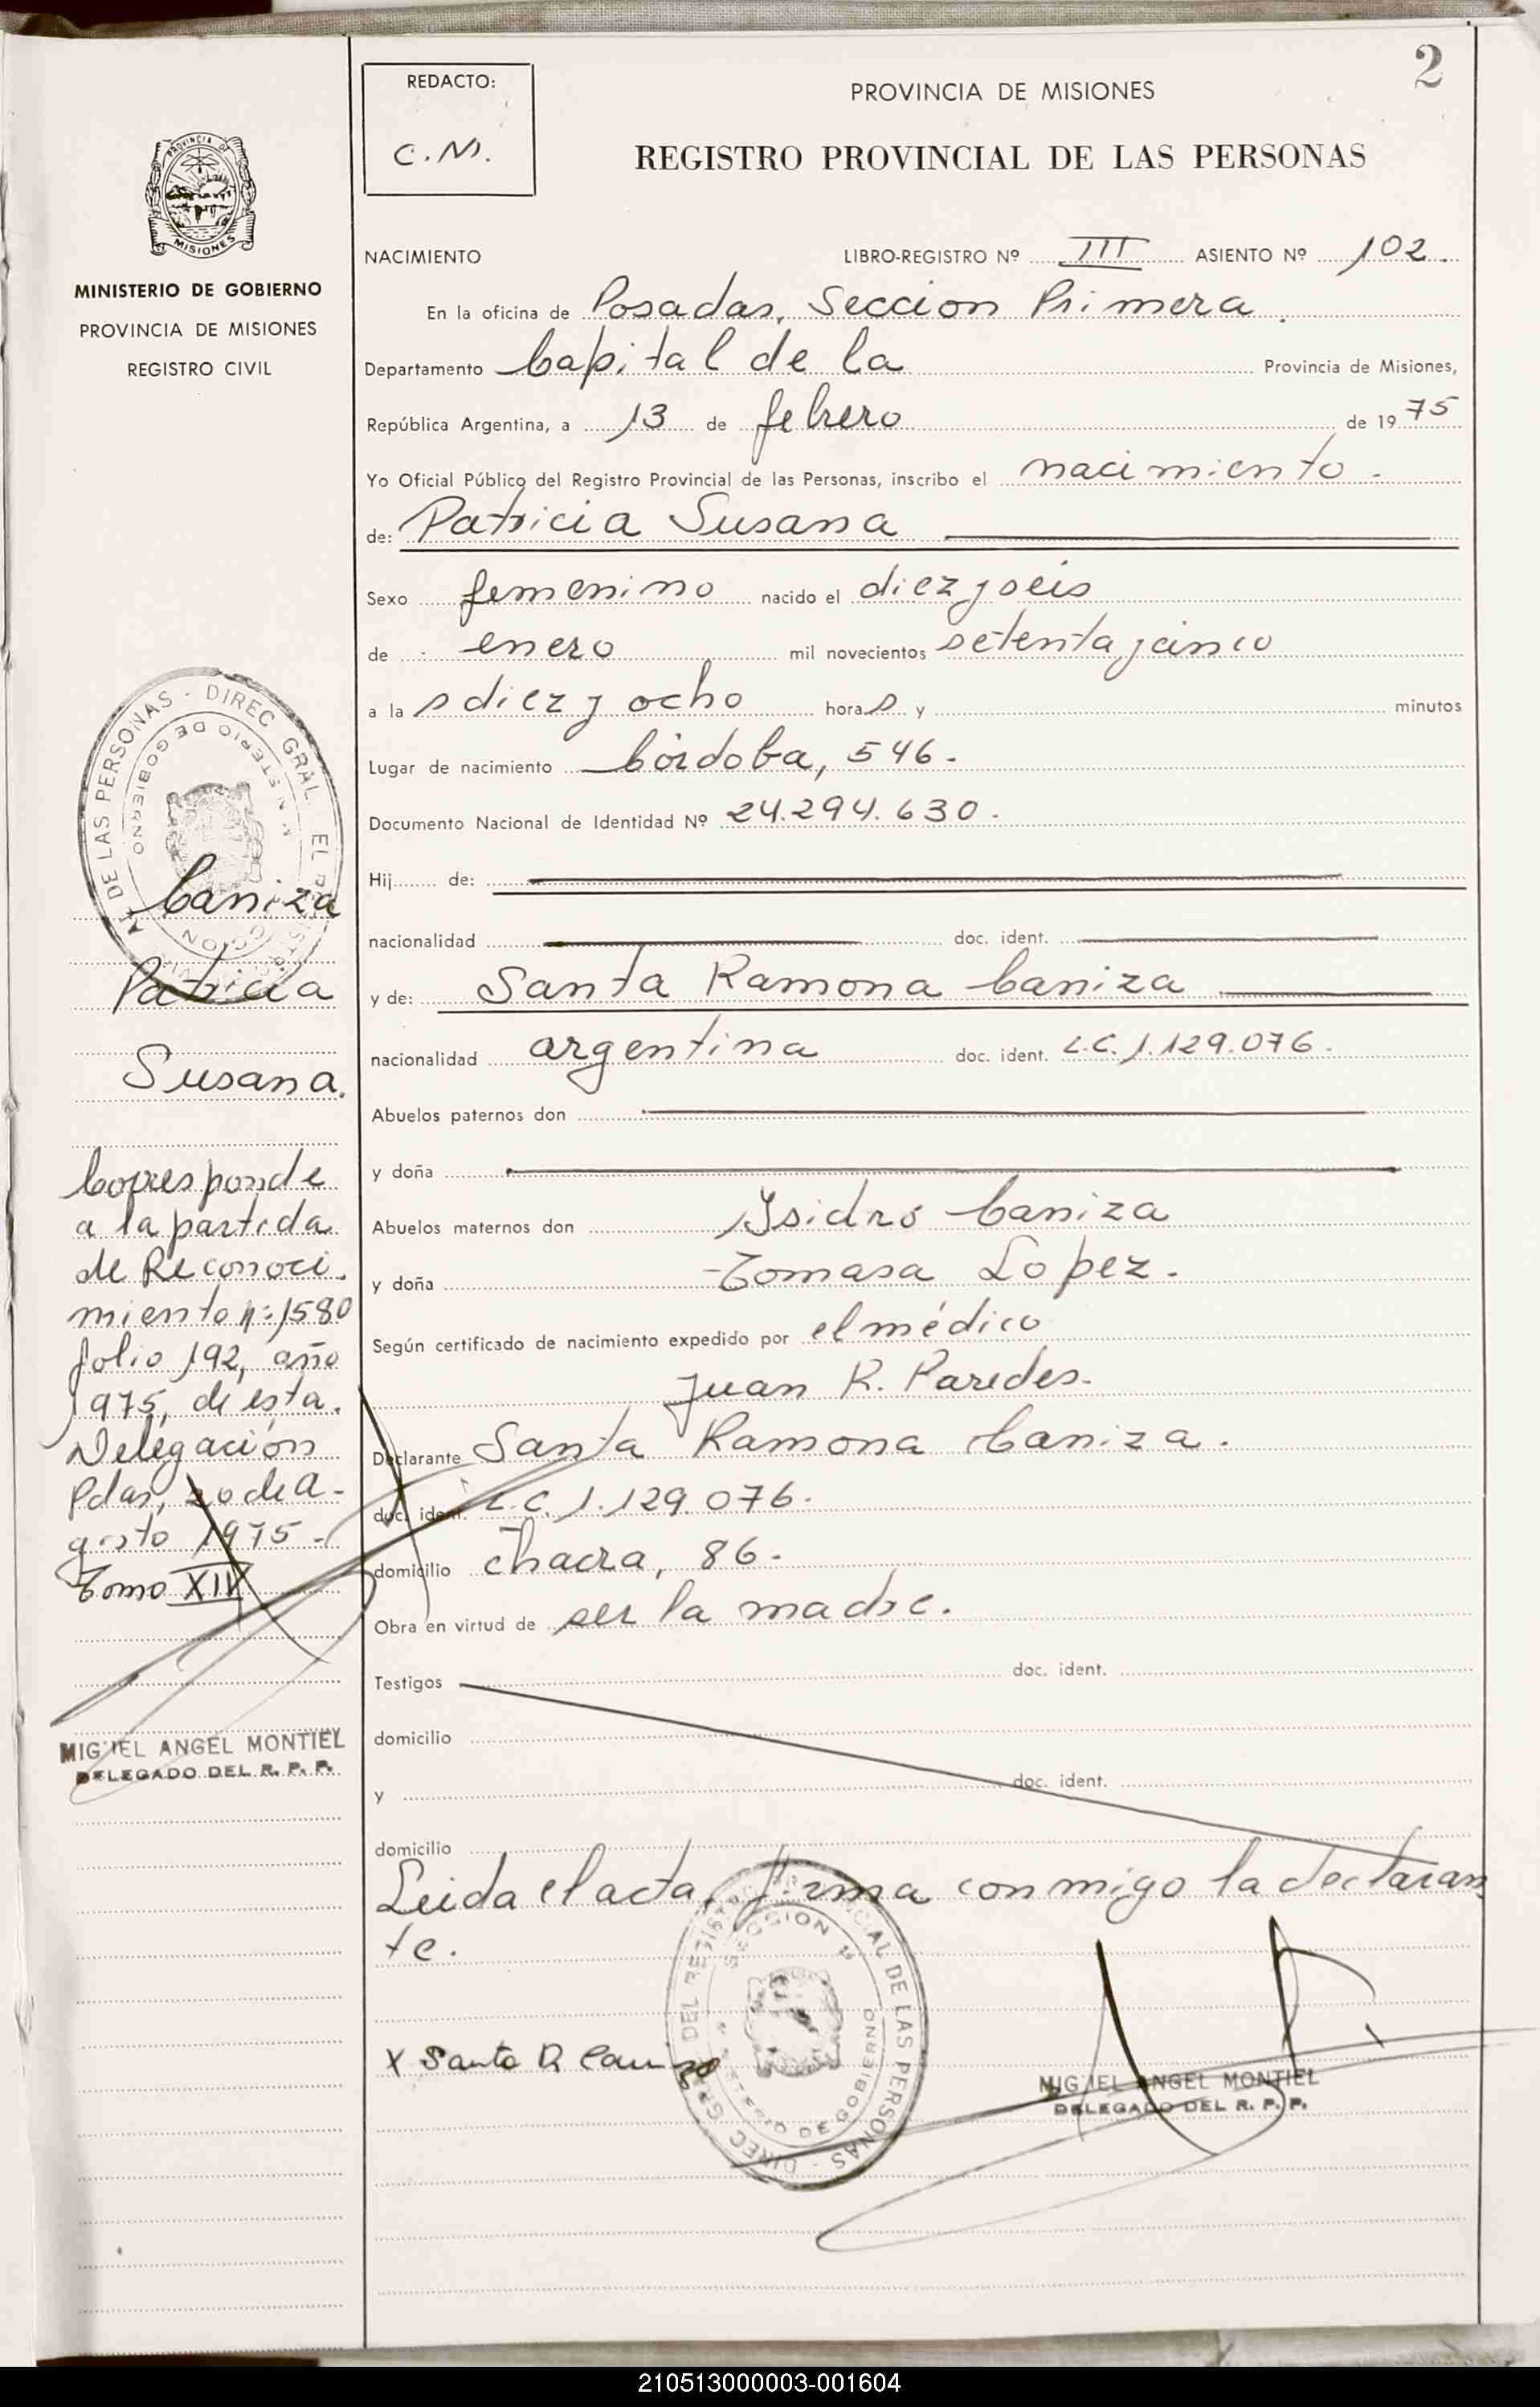 2
REDACTO:
C.M.
PROVINCIA DE MISIONES
REGISTRO PROVINCIAL DE LAS PERSONAS
PROVINCIA DE
MISIONES
MINISTERIO DE GOBIERNO
PROVINCIA DE MISIONES
REGISTRO CIVIL
NACIMIENTO LIBRO-REGISTRO Nº III ASIENTO Nº 102.
En la oficina de Posadas, Seccion Primera.
Departamento Capital de la Provincia de Misiones,
República Argentina, a 13 de febrero de 1975
Yo Oficial Público del Registro Provincial de las Personas, inscribo el nacimiento.
de: Patricia Susana
Sexo femenino nacido el diez y seis
de enero mil novecientos setenta y cinco
a la s diez y ocho horas y minutos
Lugar de nacimiento Córdoba, 546.
Documento Nacional de Identidad Nº 24.294.630.
Hij de:
nacionalidad doc. ident.
y de: Santa Ramona Caniza
nacionalidad argentina doc. ident. L.C. 1.129.076.
Abuelos paternos don
y doña
Abuelos maternos don Ysidro Caniza
y doña Tomasa Lopez.
Según certificado de nacimiento expedido por el médico
Juan R. Paredes.
Declarante Santa Ramona Caniza.
doc. ident. L.C. 1.129.076.
domicilio chacra, 86.
Obra en virtud de ser la madre.
Testigos doc. ident.
domicilio
y doc. ident.
domicilio
Leida el acta, firma conmigo la declaran
te.
X Santa R Caniza
MIGUEL ANGEL MONTIEL
DELEGADO DEL R. P. P.
DIREC GRAL DEL REGISTRO PROVINCIAL DE LAS PERSONAS
SECCION 1ª
MINISTERIO DE GOBIERNO
DE LAS PERSONAS - DIREC GRAL
MINISTERIO DE GOBIERNO
Caniza
Patricia
Susana.
Corresponde
a la partida
de Reconoci.
miento nº 1580
folio 192, año
1975, de esta.
Delegación
Pdas, 20 de a-
gosto 1975-
Tomo XIV
MIGUEL ANGEL MONTIEL
DELEGADO DEL R. P. P.
210513000003-001604